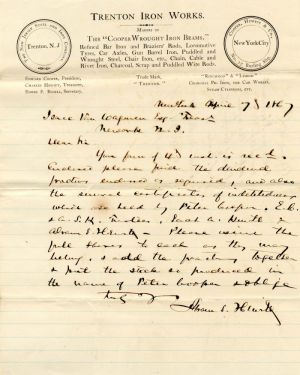 TRENTON IRON WORKS.
MAKERS OF
THE "COOPER WROUGHT IRON BEAMS."
Refined Bar Iron and Braziers' Rods, Locomotive
Tyres, Car Axles, Gun Barrel Iron, Puddled and
Wrought Steel, Chair Iron, etc., Chain, Cable and
River Iron, Charcoal, Scrap and Puddled Wire Rods.
Trenton, N.J
New York City
EDWARD COOPER, President,
CHARLES HEWITT, Treasurer,
Secretary.
Trade Mark,
"TRENTON."
"RINGWOOD" & "
CHARCOAL PIG IRON, FOR CAR WHEEL
STEAM CYLINDERS, ETC.
New York April 7 1867
Isaac Van Wagenen Esq
Newark N. J.
Dear Sir
Your favor of 4 inst. is recd.
Enclosed please find the dividend
endorsed as required, and also
the several certificates of indebtedness
which are held by Peter Cooper, E. C.
& A. S. H. Trustees, Sarah A. Hewitt &
Abram S. Hewitt - Please issue the
full shares to each as they may
belong, & add the fractions together
& put the stock so produced in
the name of Peter Cooper & oblige
Abram S. Hewitt